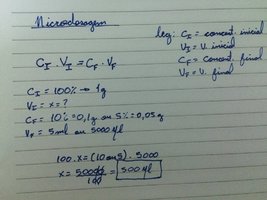 Microdosagem
leg: CI = concent. inicial
VI = V. inicial
CF = concent. final
VF = V. final
CI . VI = CF . VF
CI = 100% → 1g
VI = x = ?
CF = 10% = 0,1g ou 5% = 0,05g
VF = 5ml ou 5000 µl
100 . x = (10 ou 5) . 5000
x = 50000/100 = 500 µl